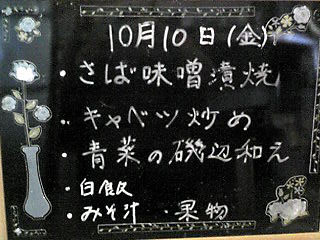 10月10日(金)
・さば味噌漬焼
・キャベツ炒め
・青菜の磯辺和え
・白飯
・みそ汁 ・果物